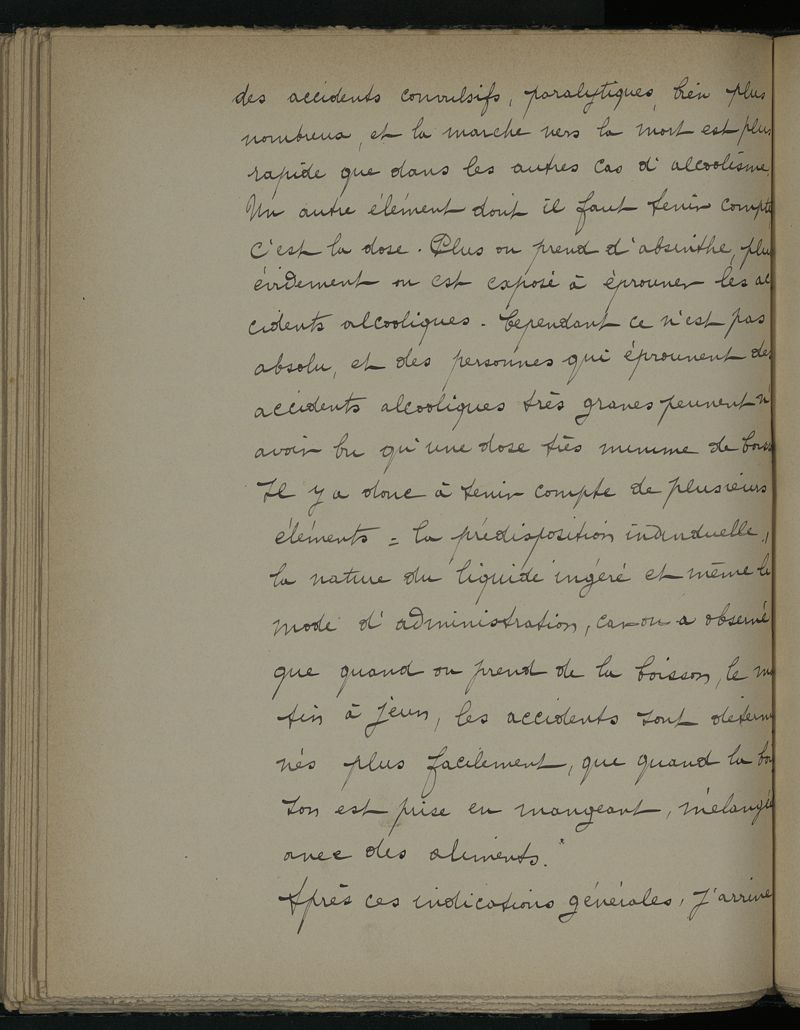 des accidents convulsifs, paralytiques, bien plus
nombreux, et la marche vers la mort est plus
rapide que dans les autres cas d'alcoolisme.
Un autre élément dont il faut tenir compte
c'est la dose. Plus on prend d'absinthe, plus
évidement on est exposé à éprouver les ac
cidents alcooliques. Cependant ce n'est pas
absolu, et des personnes qui éprouvent des
accidents alcooliques très graves peuvent n'
avoir bu qu'une dose très minime de
Il y a donc à tenir compte de plusieurs
éléments = la prédisposition individuelle,
la nature du liquide ingéré et même le
mode d'administration, car on a observé
que quand on prend de la boisson, le ma
tin à jeun, les accidents sont détermi
nés plus facilement, que quand la boi
son est prise en mangeant, mélangée
avec des aliments.*
Après ces indications générales, j'arrive